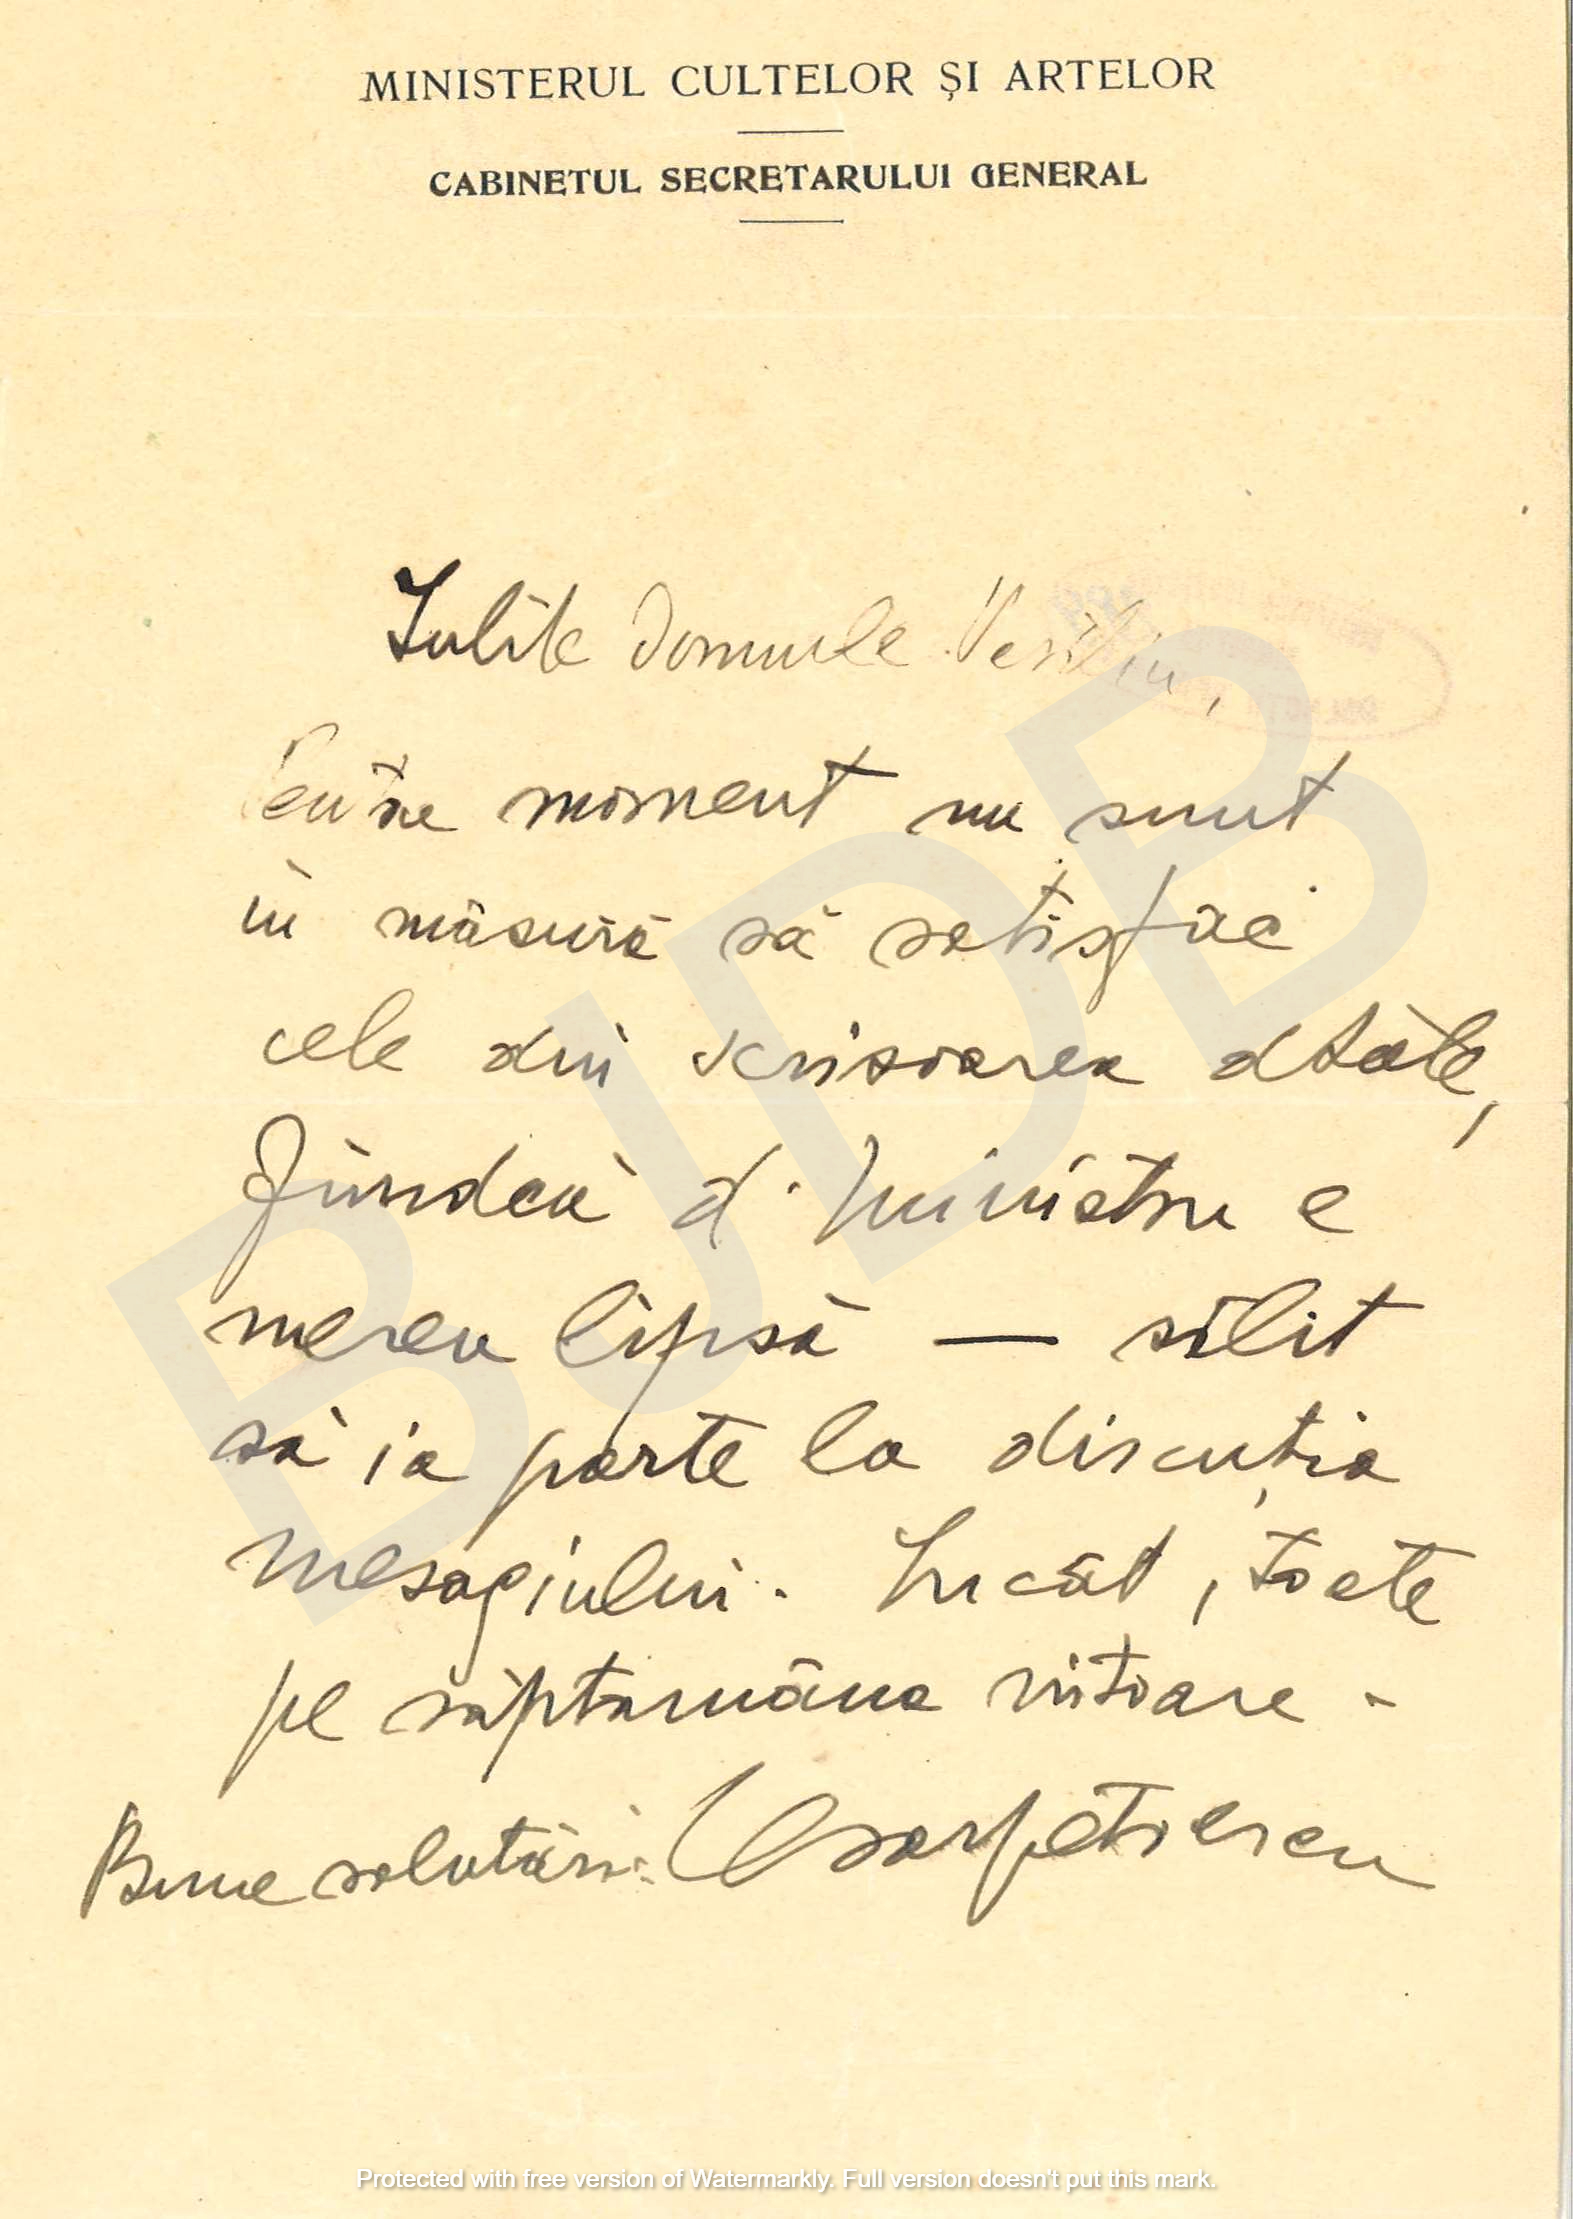 MINISTERUL CULTELOR ŞI ARTELOR
CABINETUL SECRETARULUI GENERAL
Iubite Domnule
Pentru moment nu sunt
în măsură să satisfac
cele din scrisoarea dtale,
fiindcă d. Ministru e
mereu lipsă — silit
să ia parte la discuția
mesagiului. Încât, toate
pe săptamâna viitoare.
Bune salutări.
BJDB
Protected with free version of Watermarkly. Full version doesn't put this mark.